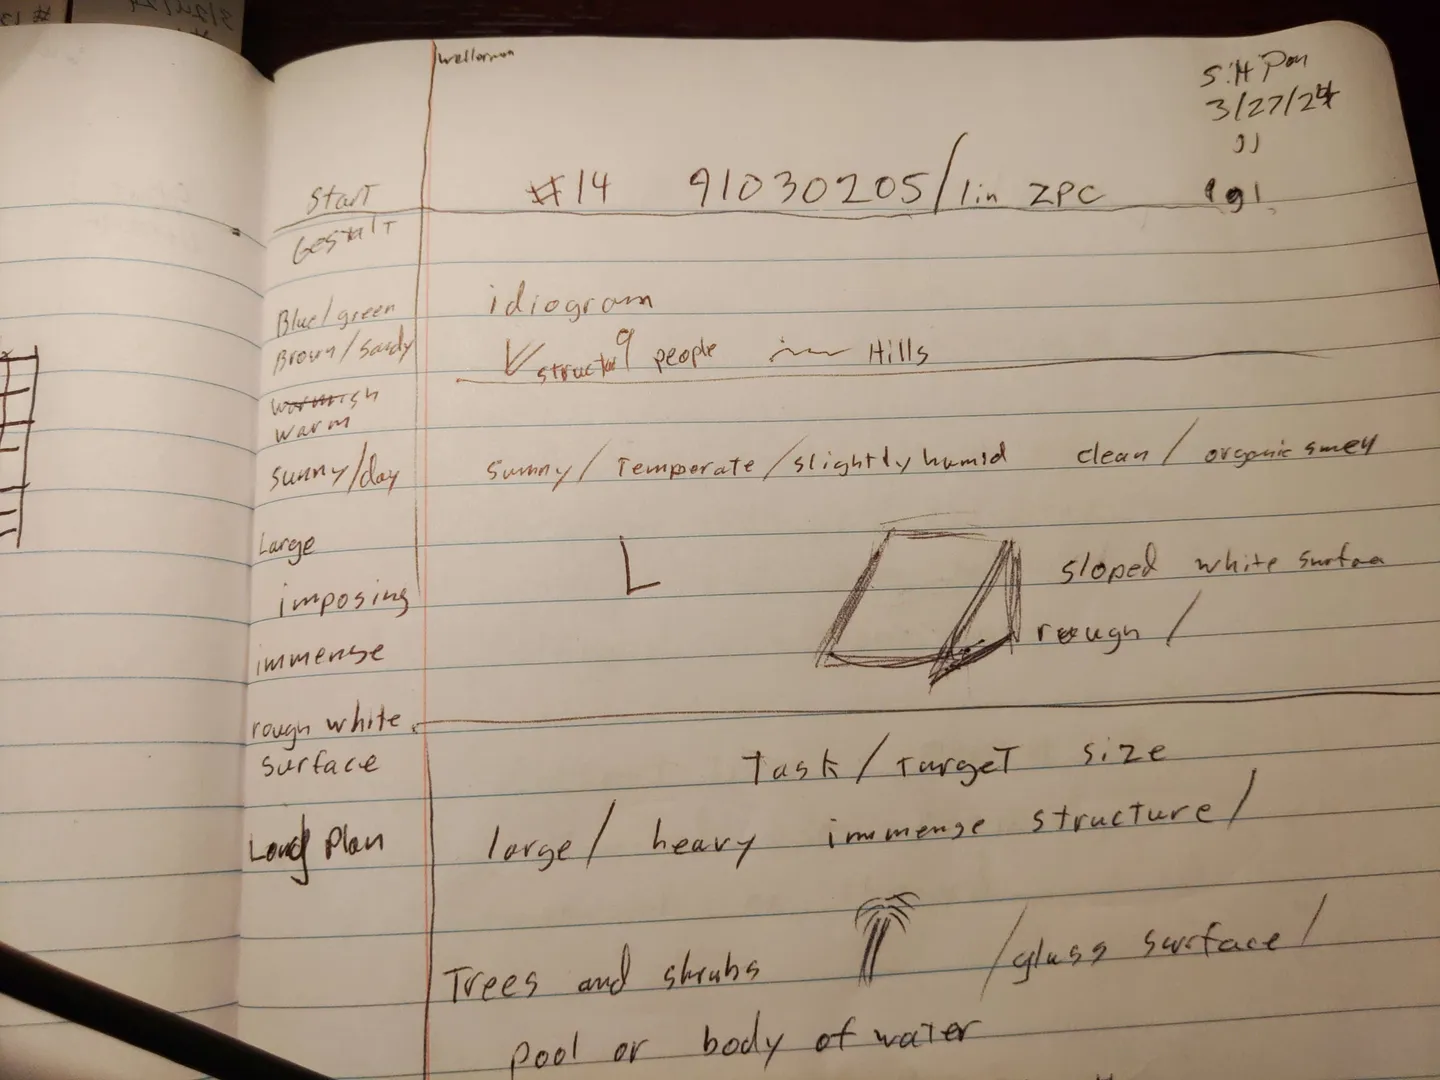 5:14 Pm
3/27/24
#14 91030205/1in ZPC
Start
Gestalt
Blue/green
Brown/Sandy
warmish
warm
sunny/day
Large
imposing
immense
rough white
surface
Land Plan
idiogram
structur people Hills
sunny/Temperate/slightly humid clean/organic smell
sloped white surface
rough /
Task/Target size
large/ heavy immense structure/
Trees and shrubs /glass surface/
pool or body of water